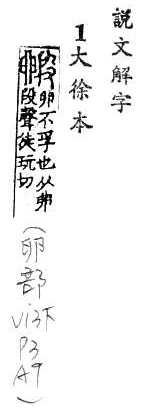 說文解字
1大徐本
毈卵不孚也从卵
段聲徒玩切
(卵部 V13下 P3 A9)